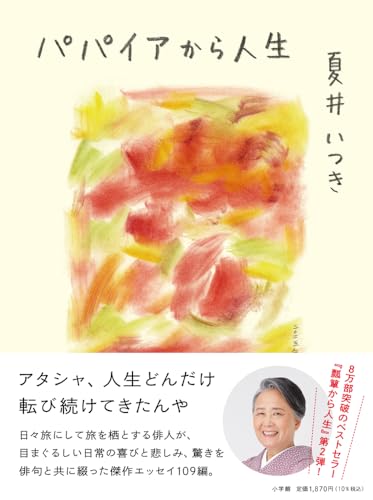 パパイアから人生
夏井いつき
アタシャ、人生どんだけ
転び続けてきたんや
日々旅にして旅を栖とする俳人が、
目まぐるしい日常の喜びと悲しみ、驚きを
俳句と共に綴った傑作エッセイ109編。
8万部突破のベストセラー
『瓢簞から人生』第2弾!
小学館 定価1,870円(10%税込)